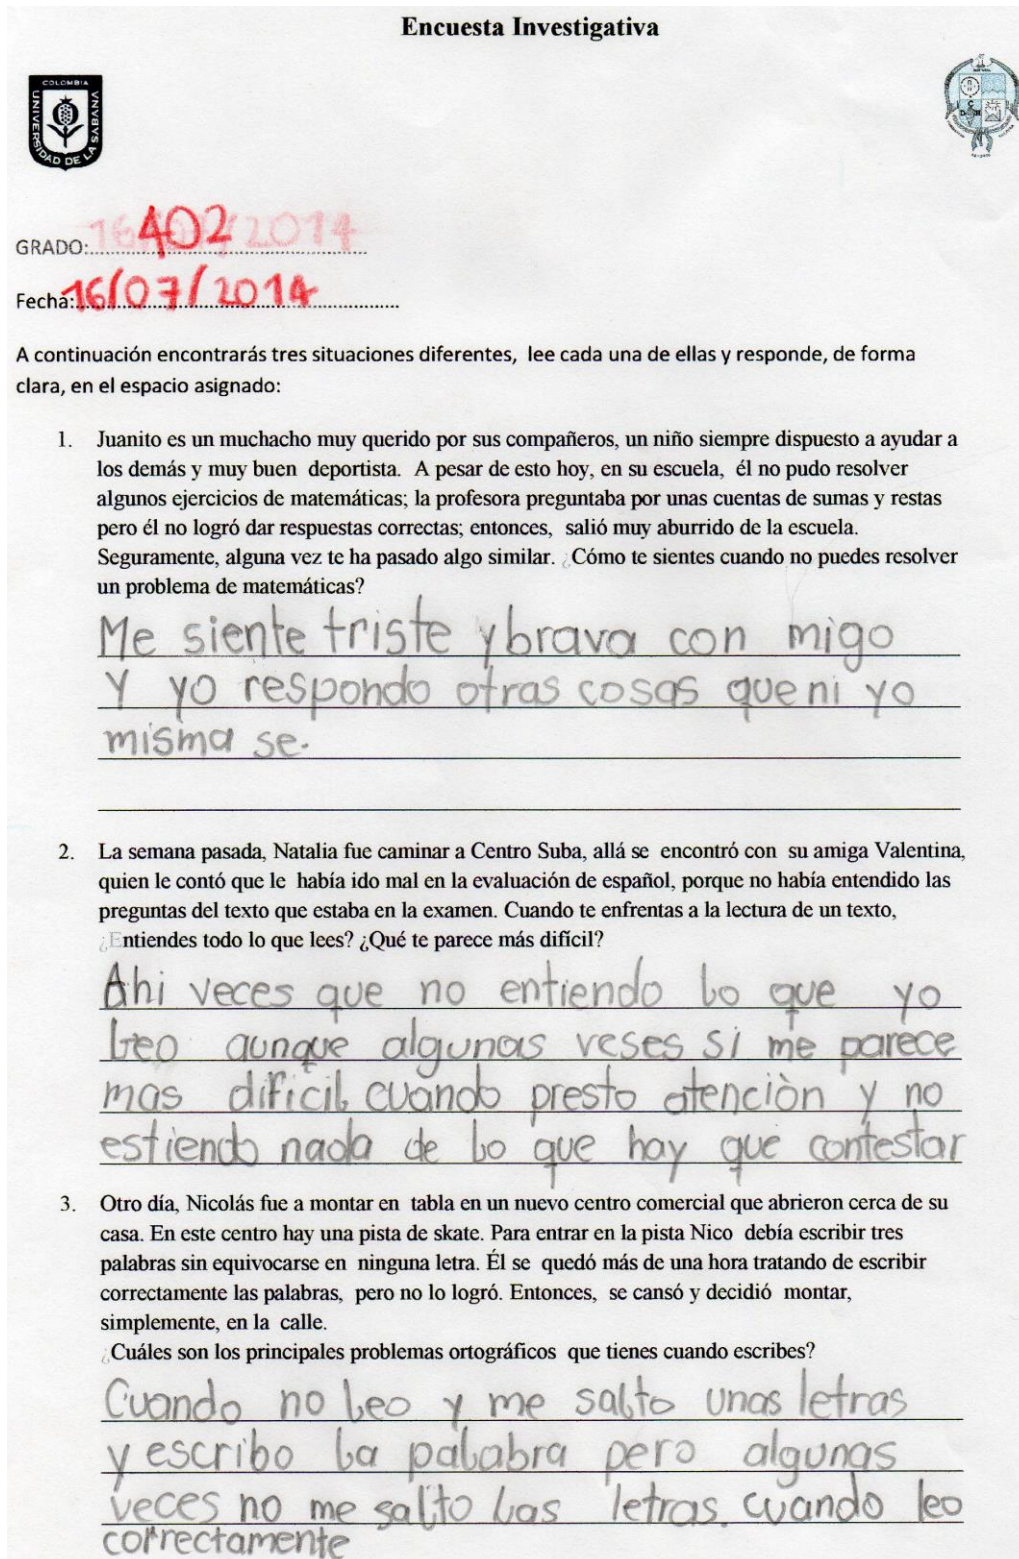 Encuesta Investigativa
COLOMBIA
UNIVERSIDAD DE LA SABANA
GRADO: 402
Fecha: 16/07/2014
A continuación encontrarás tres situaciones diferentes, lee cada una de ellas y responde, de forma
clara, en el espacio asignado:
1. Juanito es un muchacho muy querido por sus compañeros, un niño siempre dispuesto a ayudar a
los demás y muy buen deportista. A pesar de esto hoy, en su escuela, él no pudo resolver
algunos ejercicios de matemáticas; la profesora preguntaba por unas cuentas de sumas y restas
pero él no logró dar respuestas correctas; entonces, salió muy aburrido de la escuela.
Seguramente, alguna vez te ha pasado algo similar. ¿Cómo te sientes cuando no puedes resolver
un problema de matemáticas?
Me siente triste y brava con migo
Y yo respondo otras cosas que ni yo
misma se.
2. La semana pasada, Natalia fue caminar a Centro Suba, allá se encontró con su amiga Valentina,
quien le contó que le había ido mal en la evaluación de español, porque no había entendido las
preguntas del texto que estaba en la examen. Cuando te enfrentas a la lectura de un texto,
¿Entiendes todo lo que lees? ¿Qué te parece más difícil?
Ahi veces que no entiendo lo que yo
leo aunque algunas veses si me parece
mas dificil cuando presto atenciòn y no
estiendo nada de lo que hay que contestar
3. Otro día, Nicolás fue a montar en tabla en un nuevo centro comercial que abrieron cerca de su
casa. En este centro hay una pista de skate. Para entrar en la pista Nico debía escribir tres
palabras sin equivocarse en ninguna letra. Él se quedó más de una hora tratando de escribir
correctamente las palabras, pero no lo logró. Entonces, se cansó y decidió montar,
simplemente, en la calle.
¿Cuáles son los principales problemas ortográficos que tienes cuando escribes?
Cuando no leo y me salto unas letras
y escribo la palabra pero algunas
veces no me salto las letras. cuando leo
correctamente